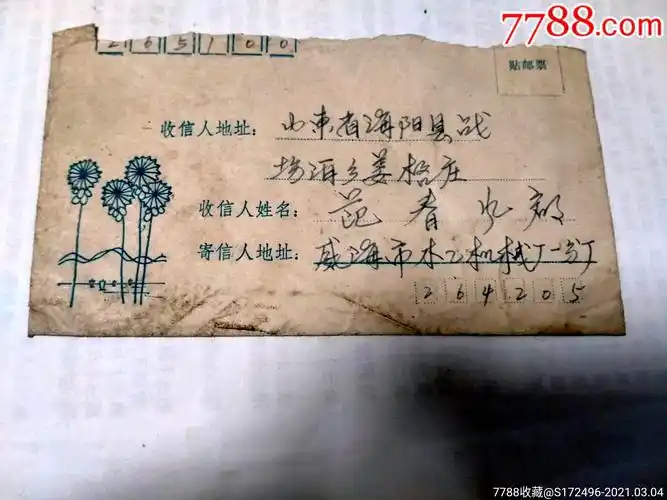 7788.com
中国收藏热线
265100
贴邮票
收信人地址: 山东省海阳县战
场泊乡姜格庄
收信人姓名: 范春
寄信人地址: 威海市木工机械厂一分厂
264205
7788收藏@S172496-2021.03.04